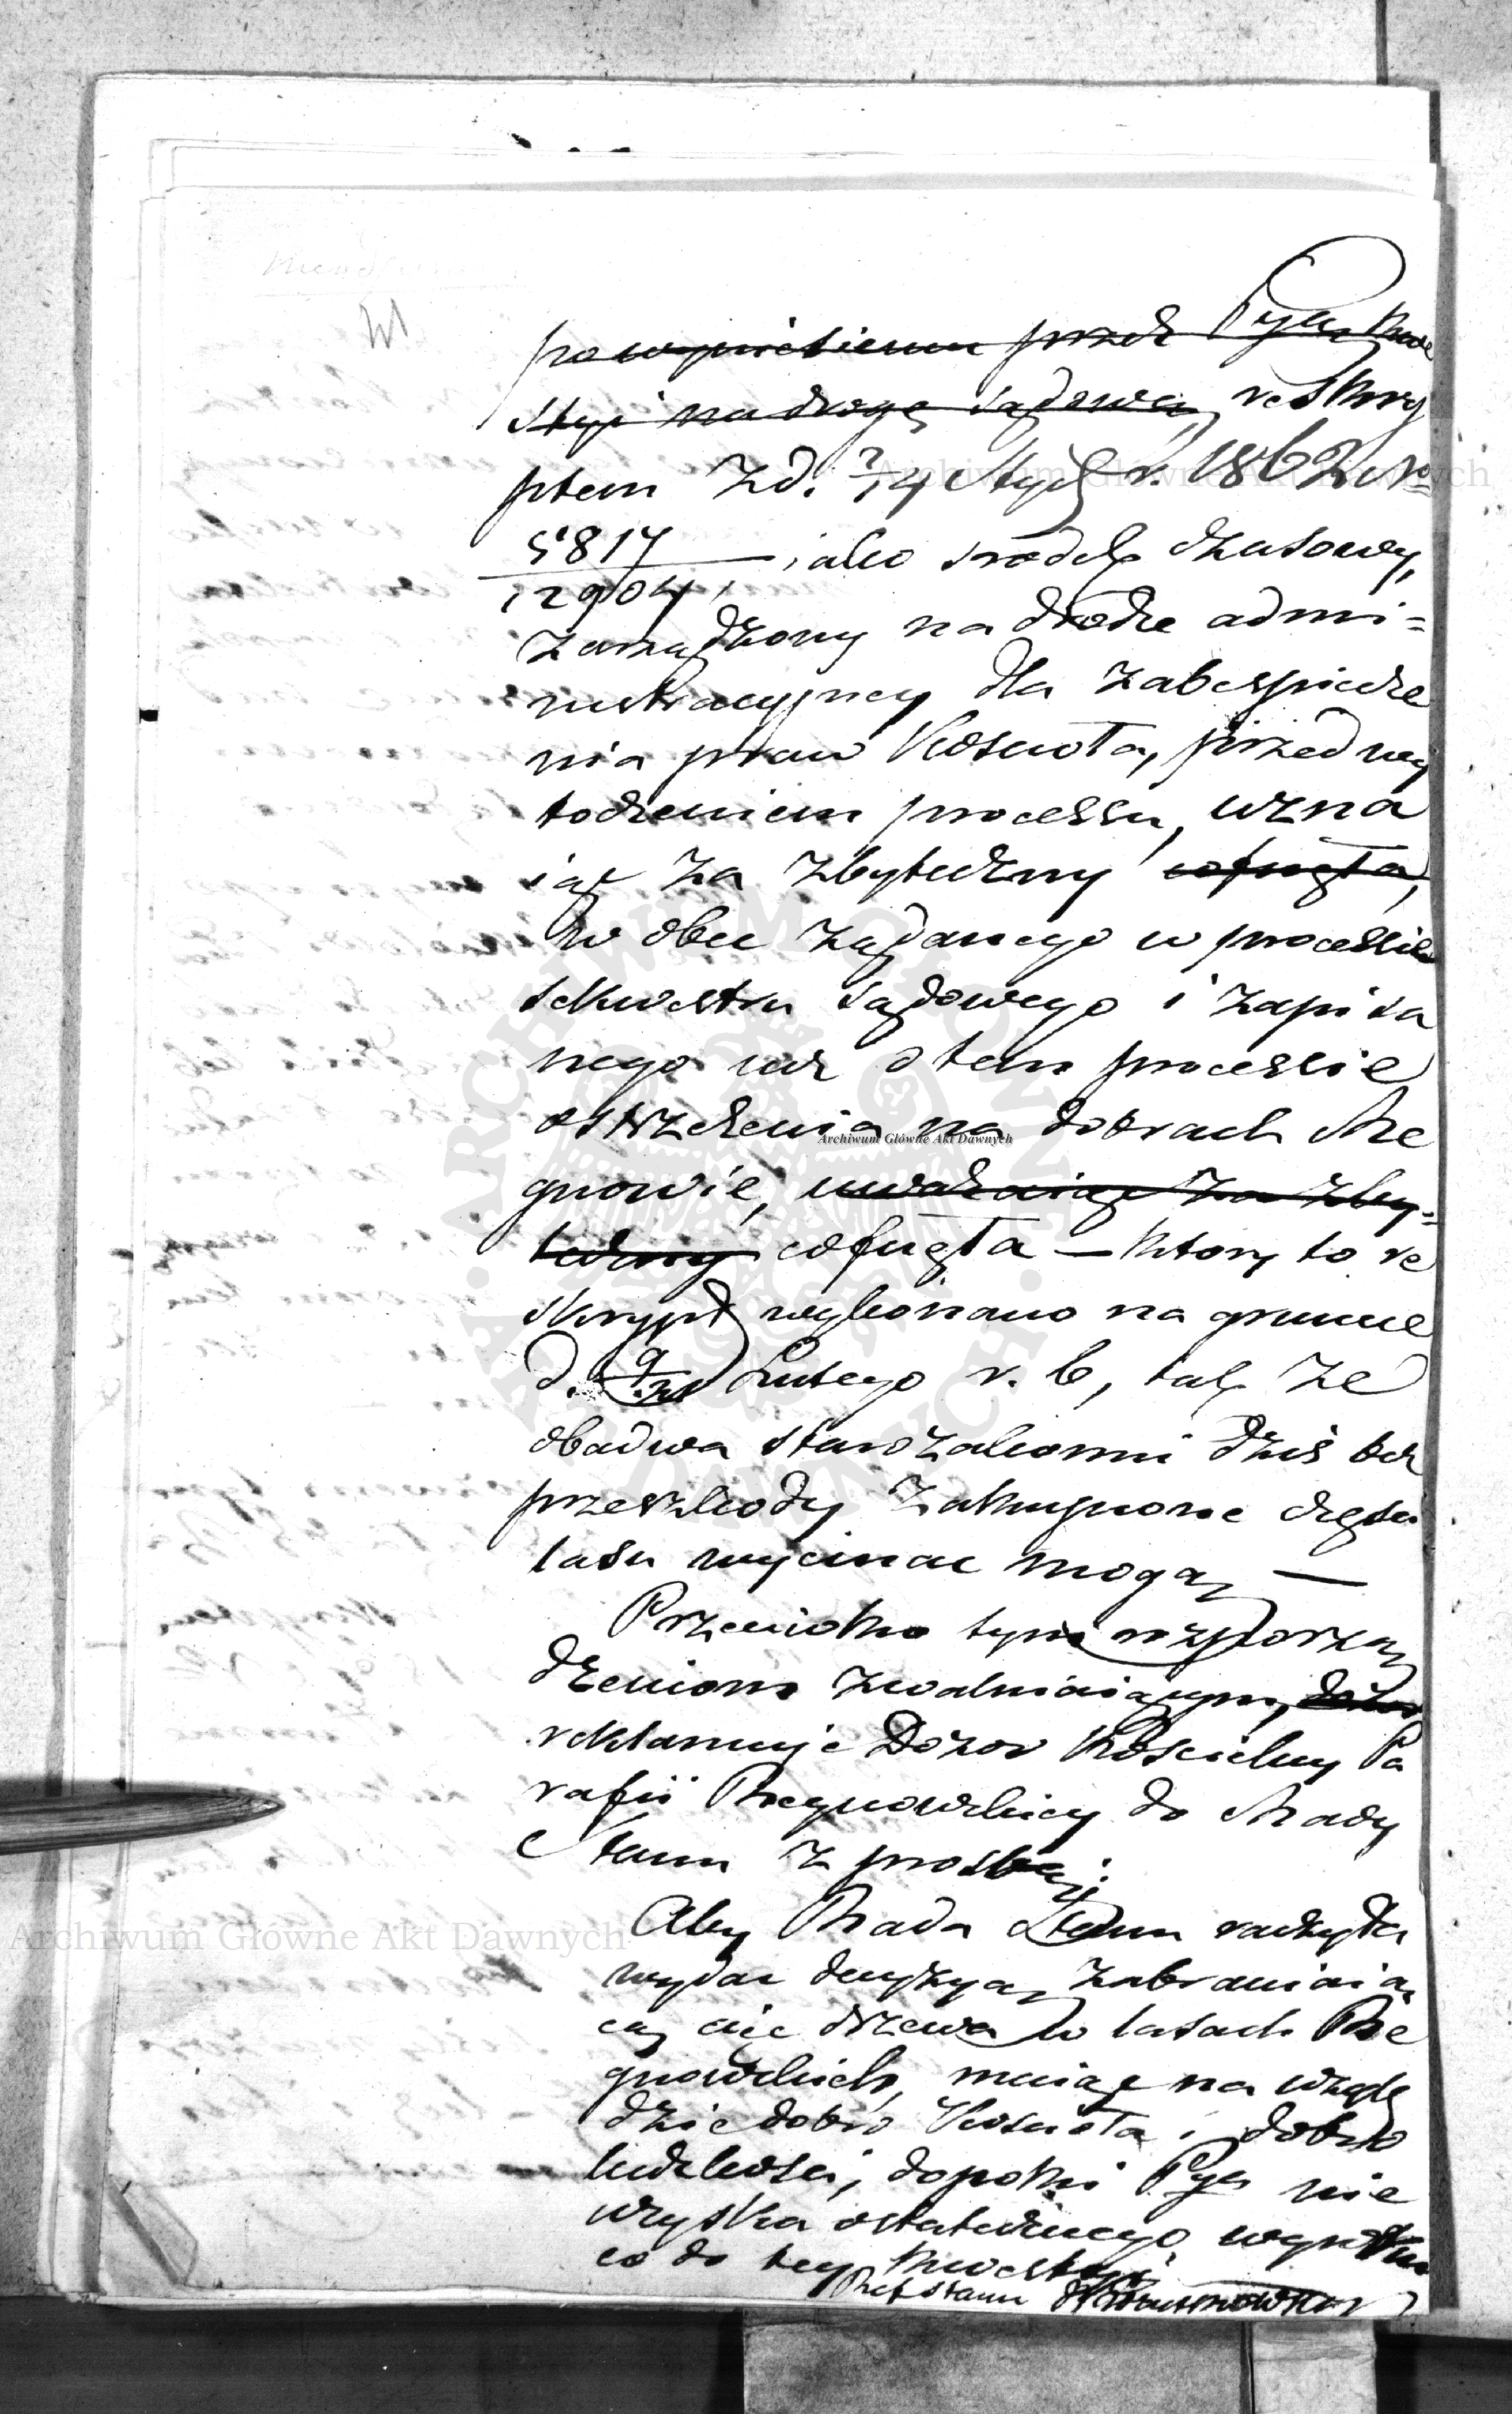 po wyniesieniu przed Pyza kwe
styi na drogę sądową, reskry
ptem z d. 2/14 Stycz r. 1862 No
5817
12904, iako srodek czasowy,
zarządzony na drodze admi=
nistracyjney dla zabespiecze
nia praw Kościoła, przed wy
toczeniem processu, uzna
iąc za zbyteczny cofnęła,
w obec żądanego w processie
sekwestru sądowego i zapisa
nego już o tem processie
ostrzeżenia na dobrach Re
gnowie, uważaiąc za zby=
teczny cofnęła — który to re
skrypt wykonano na gruncie
d. 9/21 Lutego r. b, tak że
obadwa starozakonni dziś bez
przeszkody zakupione części
lasu wycinać mogą —
Przeciwko tym rozporzą
dzeniom zwalniaiącym, dozor
reklamuje Dozor Kościelny Pa
rafii Regnowskiey do Rady
Stanu z prosbą:
Aby Rada Stanu raczyła
wydać decyzyą zabraniaią
cą cięć drzewa w lasach Re
gnowskich, maiąc na wzglę
dzie dobro Kościoła i dobro
ludzkości, dopóki Pyza nie
uzyska ostatecznego wyroku
co do tey kwestyi.
Ref Stanu
Archiwum Główne Akt Dawnych
Archiwum Główne Akt Dawnych
Archiwum Główne Akt Dawnych
ARCHIWUM GŁÓWNE AKT DAWNYCH